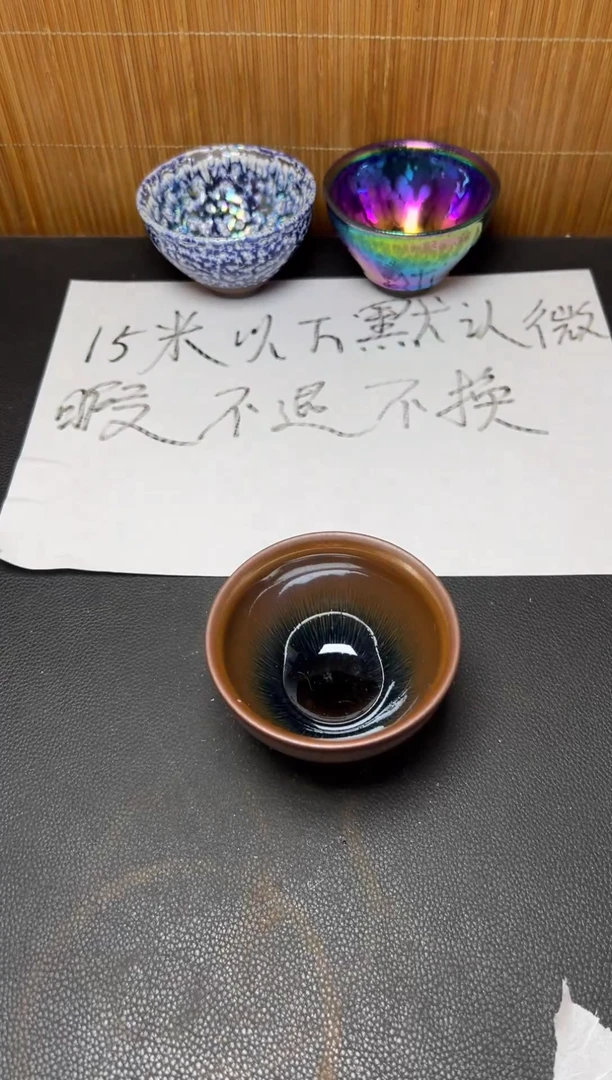 15米以下默认微
暇不退不换